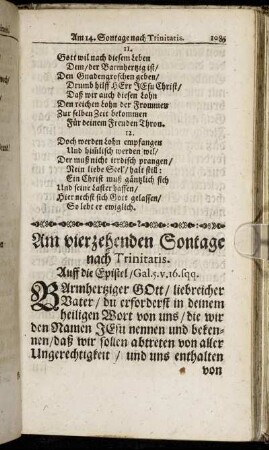 Am 14. Sontage nach Trinitatis. 1085
11.
Gott wil nach diesem Leben
Dem/ der Barmhertzig ist/
Den Gnadengroschen geben/
Drumb hilff HErr JEsu Christ/
Daß wir auch diesen Lohn
Den reichen Lohn der Frommen
Zur selben Zeit bekommen
Für deinem Freuden Thron.
12.
Doch werden Lohn empfangen
Und himlisch werden wil/
Der muß nicht irrdisch prangen/
Mein liebe Seel/ halt still:
Ein Christ muß gäntzlich sich
Und seine Laster hassen/
Hier nechst sich Gott gelassen/
So lebt er ewiglich.
Am vierzehenden Sontage
nach Trinitatis.
Auff die Epistel/ Gal. 5. v. 16. sqq.
BArmhertziger GOtt/ liebreicher
Vater/ du erforderst in deinem
heiligen Wort von uns/ die wir
den Namen JEsu nennen und beken-
nen/ daß wir sollen abtreten von aller
Ungerechtigkeit/ und uns enthalten
von